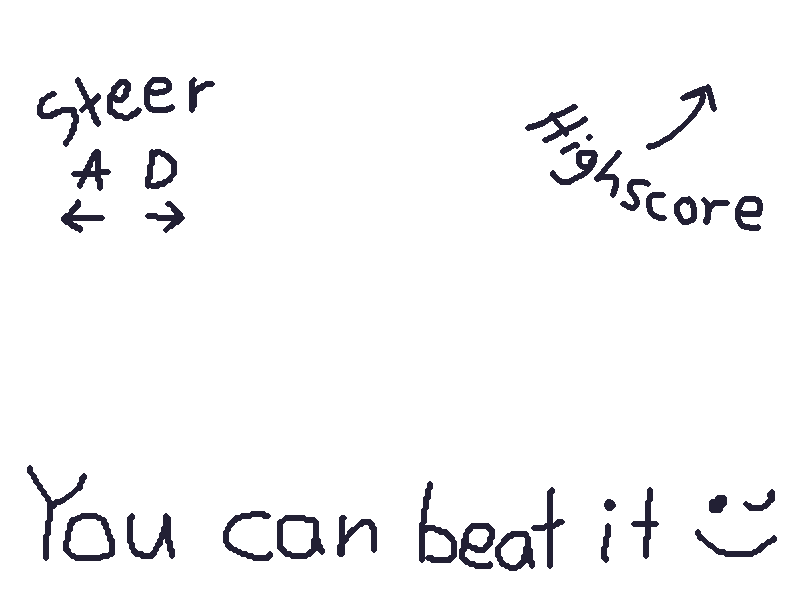 Steer
A D
← →
Highscore
You can beat it